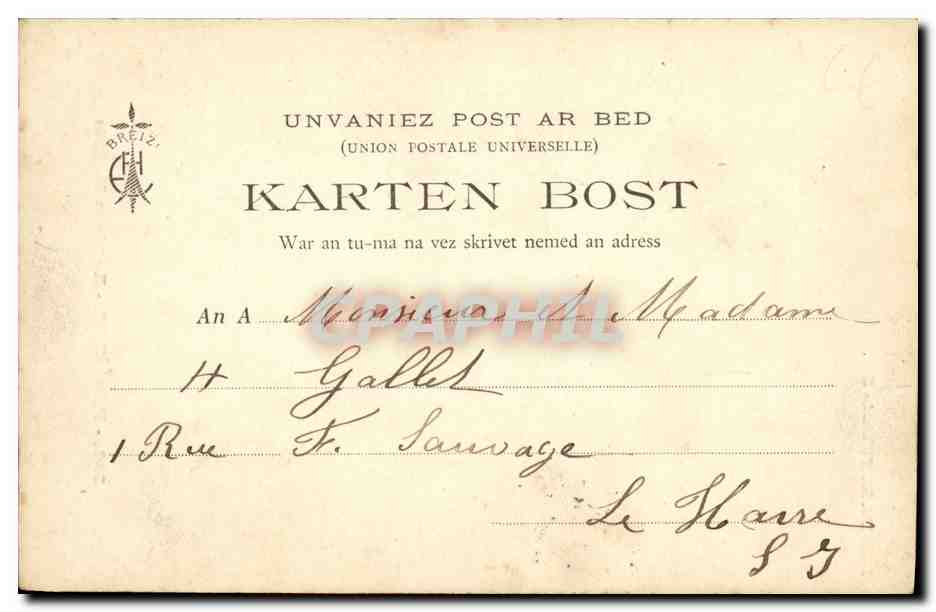 UNVANIEZ POST AR BED
(UNION POSTALE UNIVERSELLE)
BREIZ
KARTEN BOST
War an tu-ma na vez skrivet nemed an adress
An A Monsieur & Madame
H Gallet
1 Rue F. Sauvage
Le Havre
S I
CPAPHIL